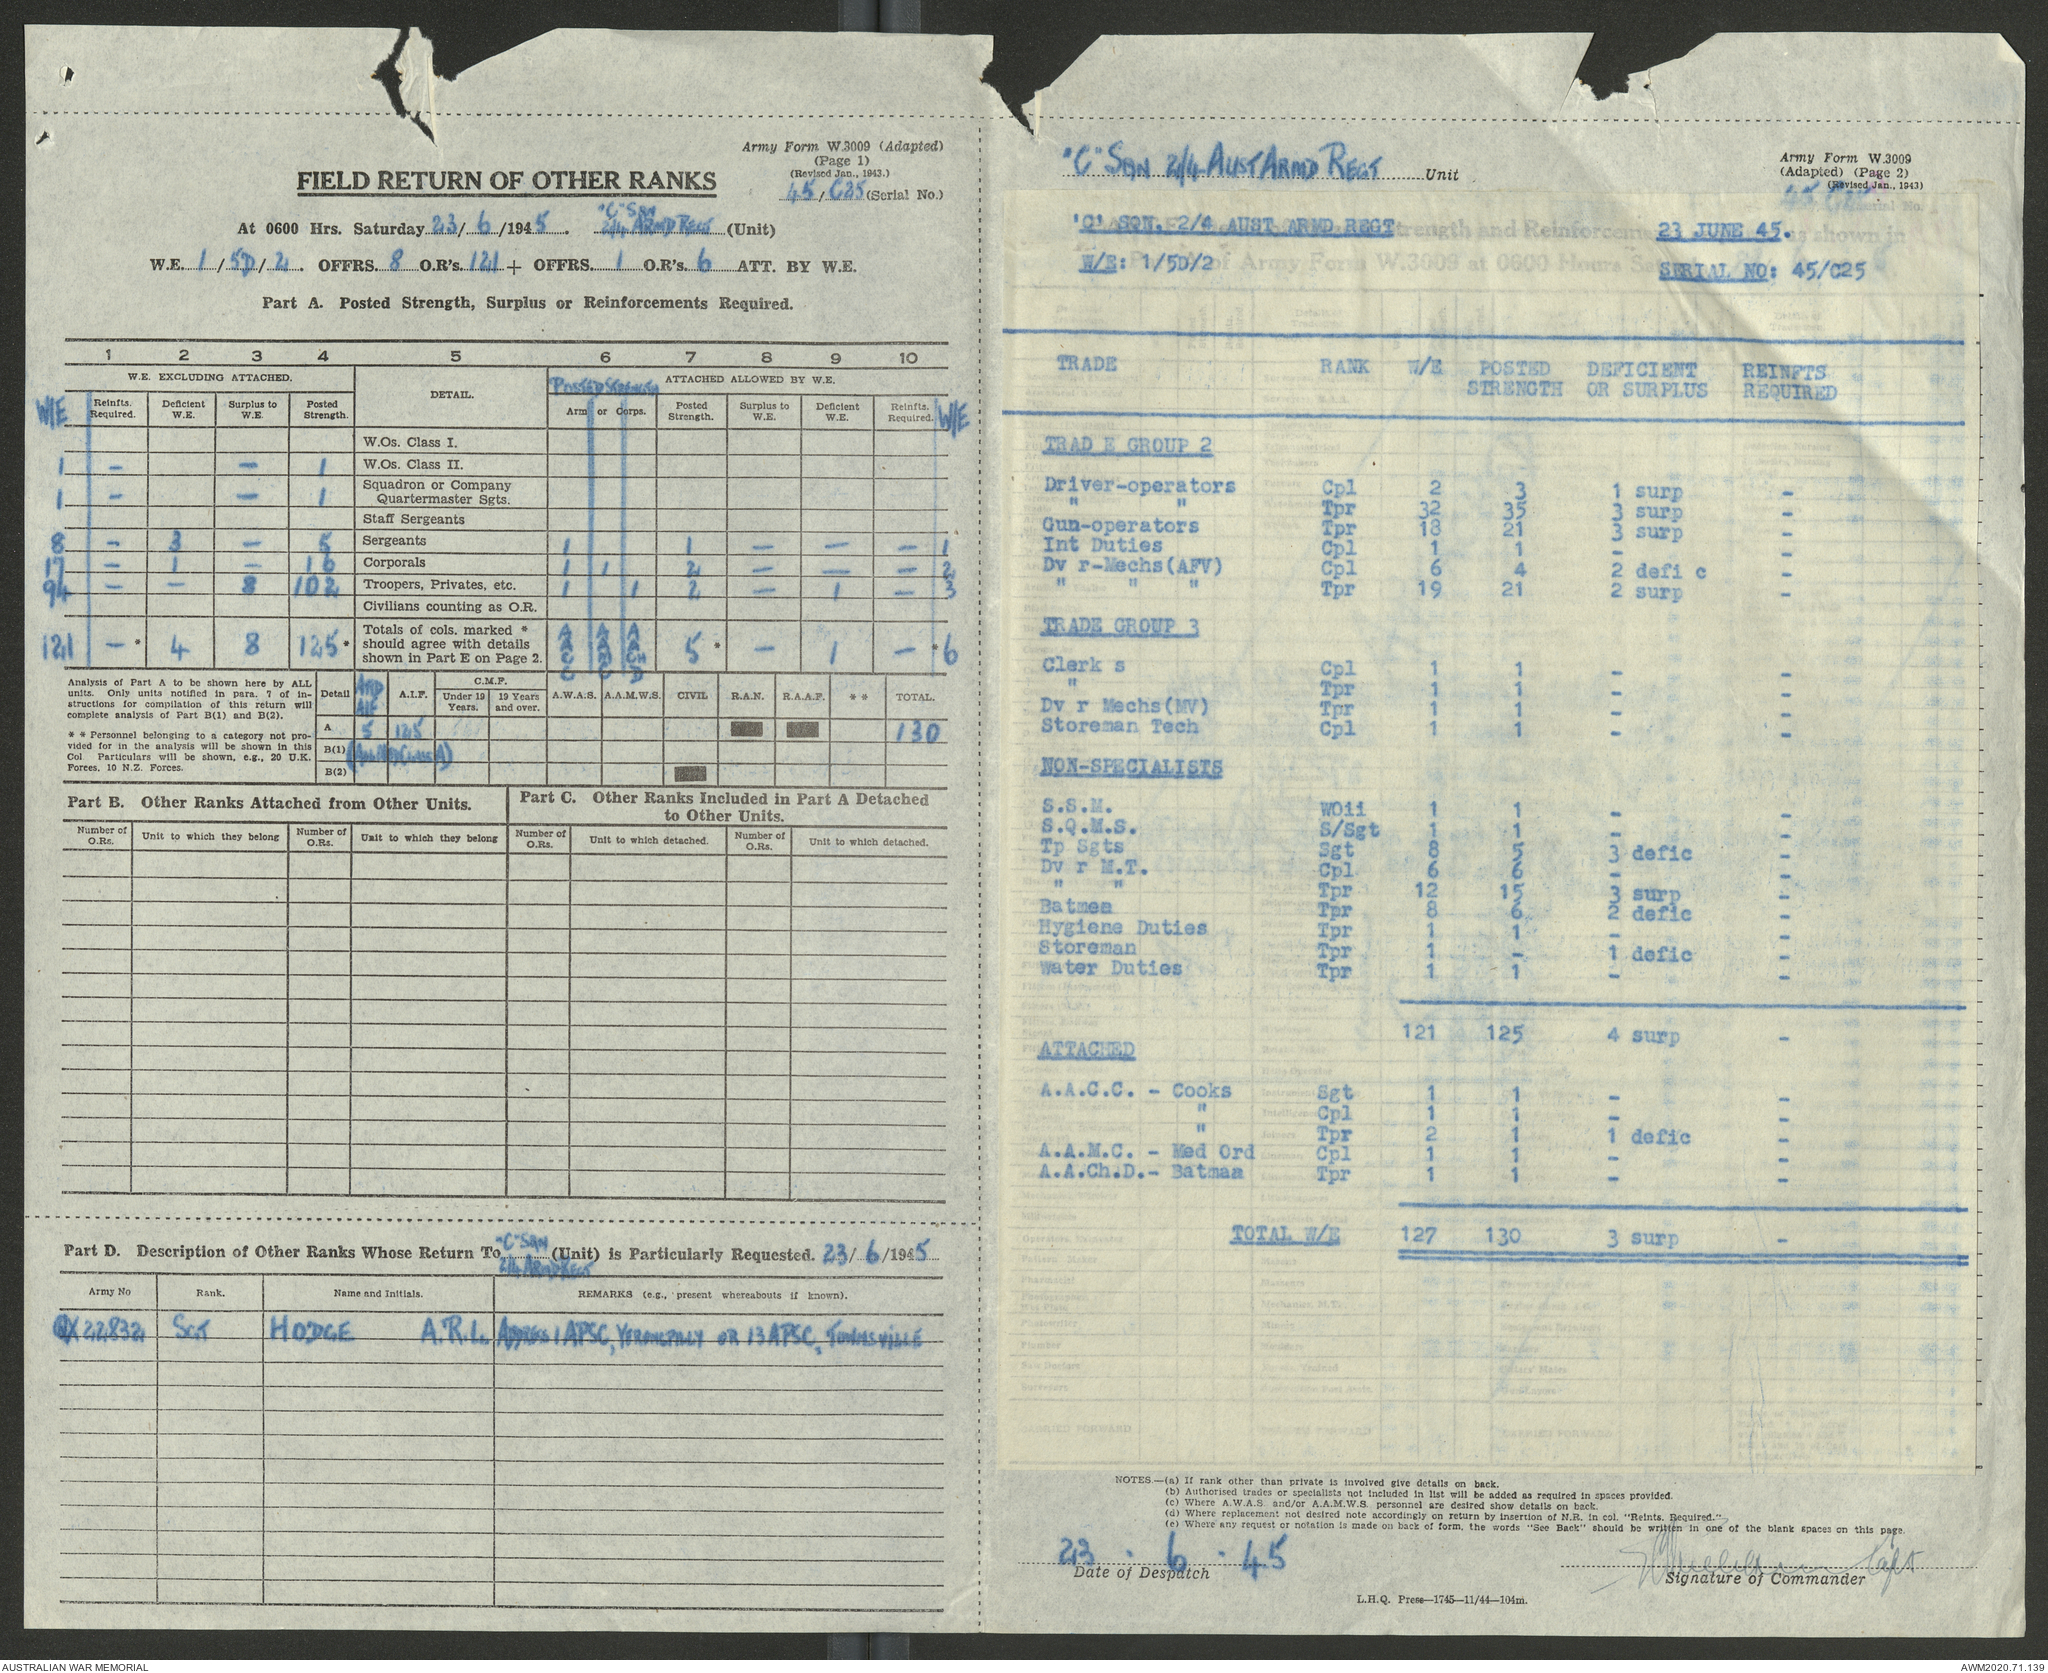 Army Form W.3009 (Adapted)
(Page 1)
(Revised Jan., 1943.)
45/C25 (Serial No.)
FIELD RETURN OF OTHER RANKS
At 0600 Hrs. Saturday 23/6/1945. "C" SQN 2/4 ARMD REGT (Unit)
W.E. 1/5D/2. OFFRS. 8 O.R's. 121 + OFFRS. 1 O.R's 6 ATT. BY W.E.
Part A. Posted Strength, Surplus or Reinforcements Required.
1 2 3 4 5 6 7 8 9 10
W.E. EXCLUDING ATTACHED. DETAIL. POSTED STRENGTH ATTACHED ALLOWED BY W.E.
W/E Reinfts. Required. Deficient W.E. Surplus to W.E. Posted Strength. Arm or Corps. Posted Strength. Surplus to W.E. Deficient W.E. Reinfts. Required. W/E
W.Os. Class I.
1 - - 1 W.Os. Class II.
1 - - 1 Squadron or Company Quartermaster Sgts.
Staff Sergeants
8 - 3 - 5 Sergeants 1 1 - - - 1
17 - 1 - 16 Corporals 1 1 2 - - - 2
94 - - 8 102 Troopers, Privates, etc. 1 1 2 - 1 - 3
Civilians counting as O.R.
121 -* 4 8 125* Totals of cols. marked * should agree with details shown in Part E on Page 2. AACC AAMC AACHD 5* - 1 -* 6
Analysis of Part A to be shown here by ALL units. Only units notified in para. 7 of instructions for compilation of this return will complete analysis of Part B(1) and B(2).
* * Personnel belonging to a category not provided for in the analysis will be shown in this Col. Particulars will be shown, e.g., 20 U.K. Forces, 10 N.Z. Forces.
Detail ATTD AIF A.I.F. C.M.F. Under 19 Years. 19 Years and over. A.W.A.S. A.A.M.W.S. CIVIL R.A.N. R.A.A.F. * * TOTAL.
A 5 125 130
B(1)
B(2)
Part B. Other Ranks Attached from Other Units.
Part C. Other Ranks Included in Part A Detached to Other Units.
Number of O.Rs. Unit to which they belong Number of O.Rs. Unit to which they belong Number of O.Rs. Unit to which detached. Number of O.Rs. Unit to which detached.
Part D. Description of Other Ranks Whose Return To "C" SQN 2/4 ARMD REGT (Unit) is Particularly Requested. 23/6/1945
Army No Rank. Name and Initials. REMARKS (e.g., present whereabouts if known).
QX22832 SGT HODGE A.R.L. ADDRESS 1 APSC, YERONGPILLY OR 13 APSC, TOWNSVILLE
"C" SQN 2/4 AUST ARMD REGT Unit
Army Form W.3009
(Adapted) (Page 2)
(Revised Jan., 1943)
'C' SQN, 2/4 AUST ARMD REGT 23 JUNE 45.
W/E: 1/5D/2 SERIAL NO: 45/C25
TRADE RANK W/E POSTED STRENGTH DEFICIENT OR SURPLUS REINFTS REQUIRED
TRAD E GROUP 2
Driver-operators Cpl 2 3 1 surp -
" " Tpr 32 35 3 surp -
Gun-operators Tpr 18 21 3 surp -
Int Duties Cpl 1 1 - -
Dv r-Mechs(AFV) Cpl 6 4 2 defi c -
" " " Tpr 19 21 2 surp -
TRADE GROUP 3
Clerk s Cpl 1 1 - -
" Tpr 1 1 - -
Dv r Mechs(MV) Tpr 1 1 - -
Storeman Tech Cpl 1 1 - -
NON-SPECIALISTS
S.S.M. WOii 1 1 - -
S.Q.M.S. S/Sgt 1 1 - -
Tp Sgts Sgt 8 5 3 defic -
Dv r M.T. Cpl 6 6 - -
" " Tpr 12 15 3 surp -
Batmen Tpr 8 6 2 defic -
Hygiene Duties Tpr 1 1 - -
Storeman Tpr 1 - 1 defic -
Water Duties Tpr 1 1 - -
121 125 4 surp -
ATTACHED
A.A.C.C. - Cooks Sgt 1 1 - -
" Cpl 1 1 - -
" Tpr 2 1 1 defic -
A.A.M.C. - Med Ord Cpl 1 1 - -
A.A.Ch.D.- Batman Tpr 1 1 - -
TOTAL W/E 127 130 3 surp -
NOTES.—(a) If rank other than private is involved give details on back.
(b) Authorised trades or specialists not included in list will be added as required in spaces provided.
(c) Where A.W.A.S. and/or A.A.M.W.S. personnel are desired show details on back.
(d) Where replacement not desired note accordingly on return by insertion of N.R. in col. "Reints. Required."
(e) Where any request or notation is made on back of form, the words "See Back" should be written in one of the blank spaces on this page.
23 . 6 . 45
Date of Despatch
Capt
Signature of Commander
L.H.Q. Press—1745—11/44—104m.
AUSTRALIAN WAR MEMORIAL
AWM2020.71.139